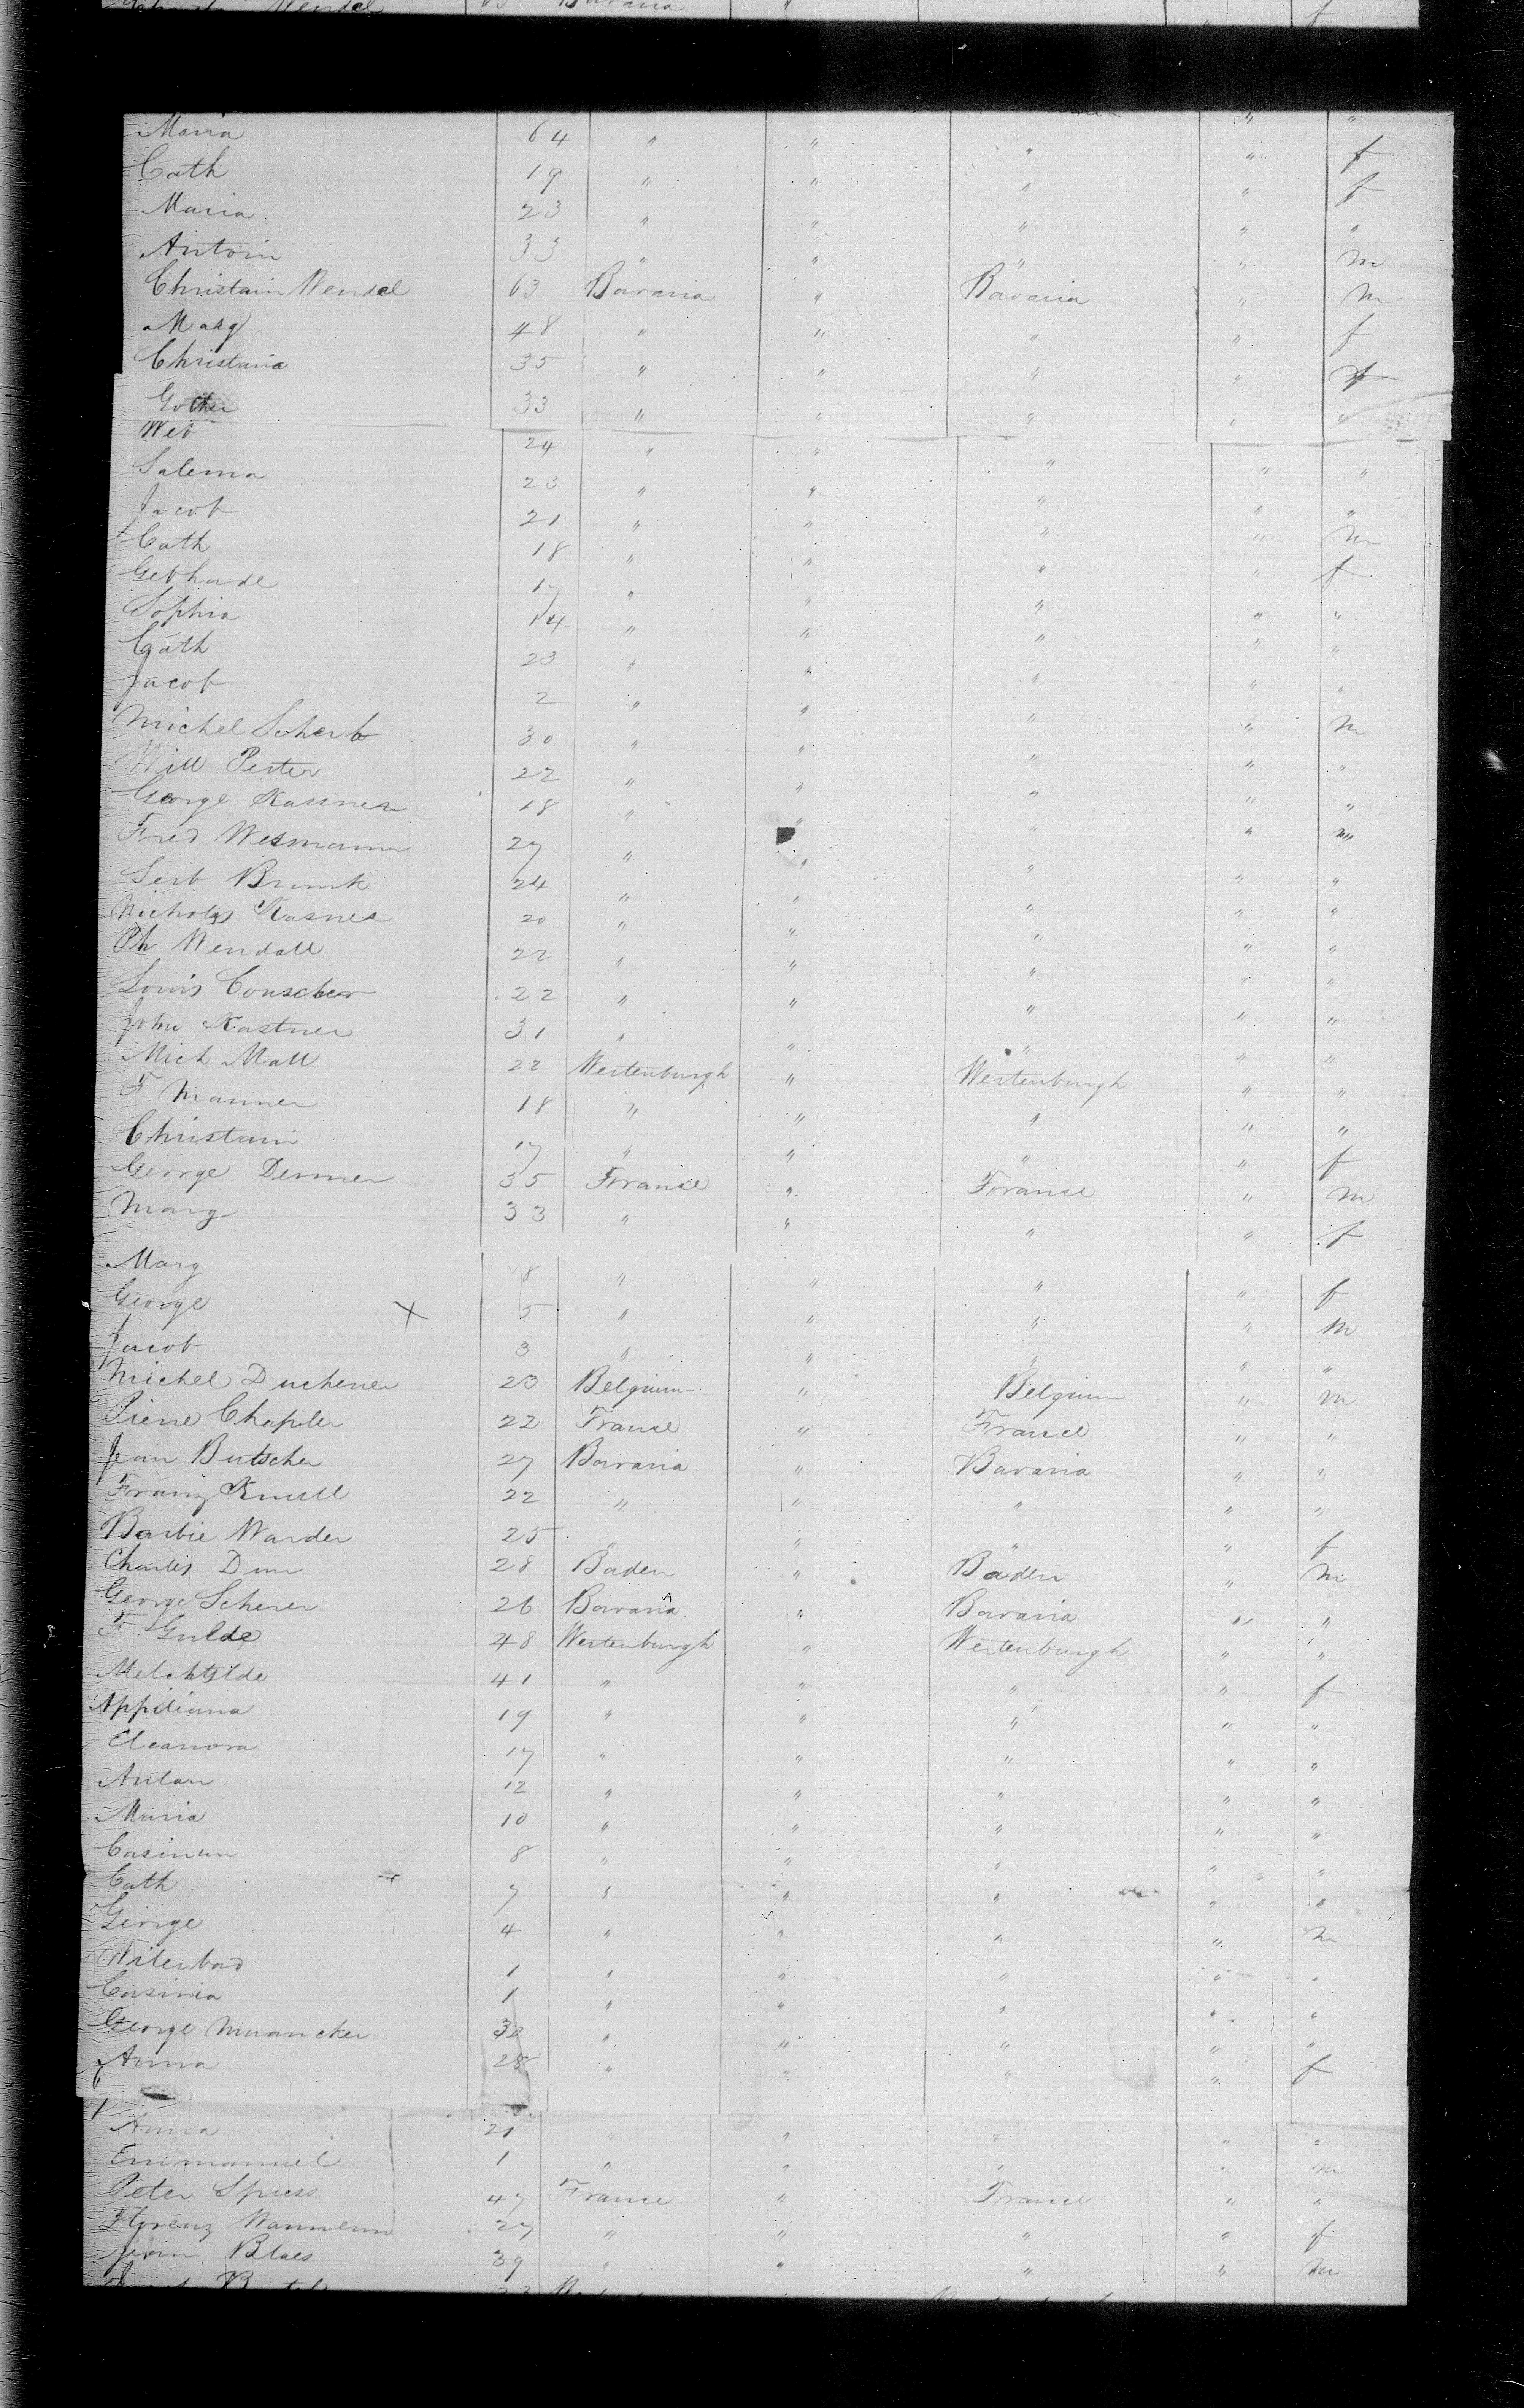 Maria 64 " " " " f
Cath 19 " " " " f
Maria 23 " " " " "
Antoin 33 " " " " m
Christain Wendel 63 Bavaria " Bavaria " m
Marg 48 " " " " f
Christina 35 " " " " f
33 " " " " "
24 " " " " "
Salema 23 " " " " "
Jacob 21 " " " " m
Cath 18 " " " " f
Gebharde 17 " " " " "
Sophia 14 " " " " "
Cath 23 " " " " "
Jacob 2 " " " " m
Michel Scherb 30 " " " " "
Will Pester 22 " " " " "
George Kassner 18 " " " " m
Fred Wesmann 27 " " " " "
Brunk 24 " " " " "
Nicholas Kasner 20 " " " " "
Ph Wendall 22 " " " " "
Louis Couscher 22 " " " " "
John Kastner 31 " " " " "
Mich Mall 22 Wertenburgh " Wertenburgh " "
F Manner 18 " " " " "
Christain 17 " " " " f
George Denner 35 France " France " m
Marg 33 " " " " f
Marg 8 " " " " f
George X 5 " " " " m
Jacob 3 " " " " "
Michel Duchener 23 Belgium " Belgium " m
Piere Chapeler 22 France " France " "
Jean Butscher 27 Bavaria " Bavaria " "
Franz Knull 22 " " " " "
Barbie Warder 25 " " " " f
Charles Dum 28 Baden " Baden " m
George Scherer 26 Bavaria " Bavaria " "
F Gulde 48 Wertenburgh " Wertenburgh " "
Melchtilde 41 " " " " f
Appiliana 19 " " " " "
Eleanora 17 " " " " "
Anton 12 " " " " "
Maria 10 " " " " "
Casimun 8 " " " " "
Cath 7 " " " " "
George 4 " " " " m
Witerbad 1 " " " " "
Casimia 1 " " " " "
George Muancker 32 " " " " "
Anna 28 " " " " f
Anna 21 " " " " "
Emmanuel 1 " " " " m
Peter Spiess 47 France " France " "
Florenz 27 " " " " f
Blaes 39 " " " " m